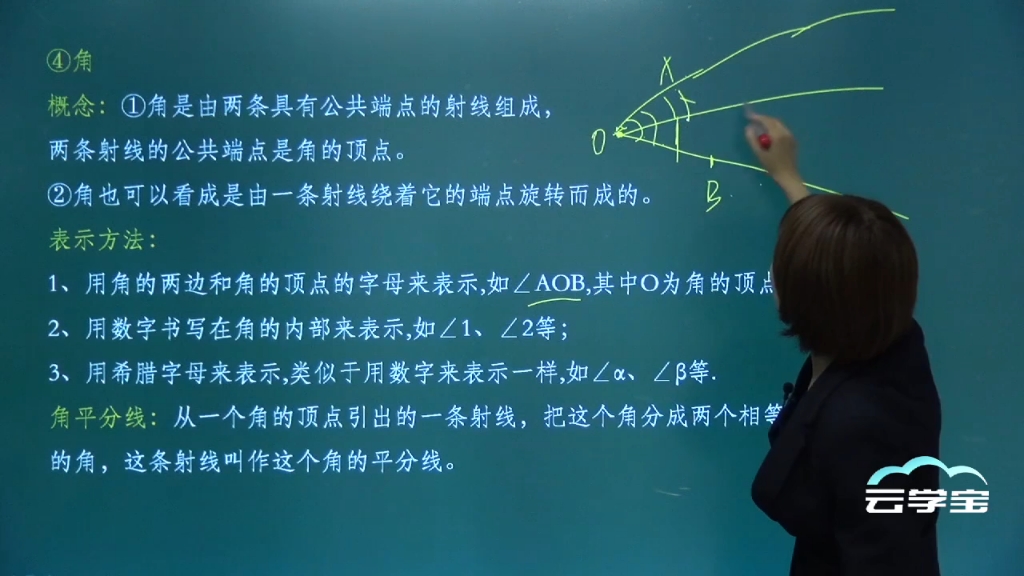 ④角
概念：①角是由两条具有公共端点的射线组成，
两条射线的公共端点是角的顶点。
②角也可以看成是由一条射线绕着它的端点旋转而成的。
表示方法：
1、用角的两边和角的顶点的字母来表示,如∠AOB,其中O为角的顶点
2、用数字书写在角的内部来表示,如∠1、∠2等；
3、用希腊字母来表示,类似于用数字来表示一样,如∠α、∠β等.
角平分线：从一个角的顶点引出的一条射线，把这个角分成两个相等
的角，这条射线叫作这个角的平分线。
A
O
B
云学宝